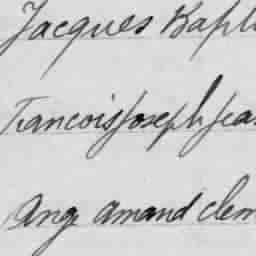 Jacques Bapti
francois joseph jea
Ange amand clem